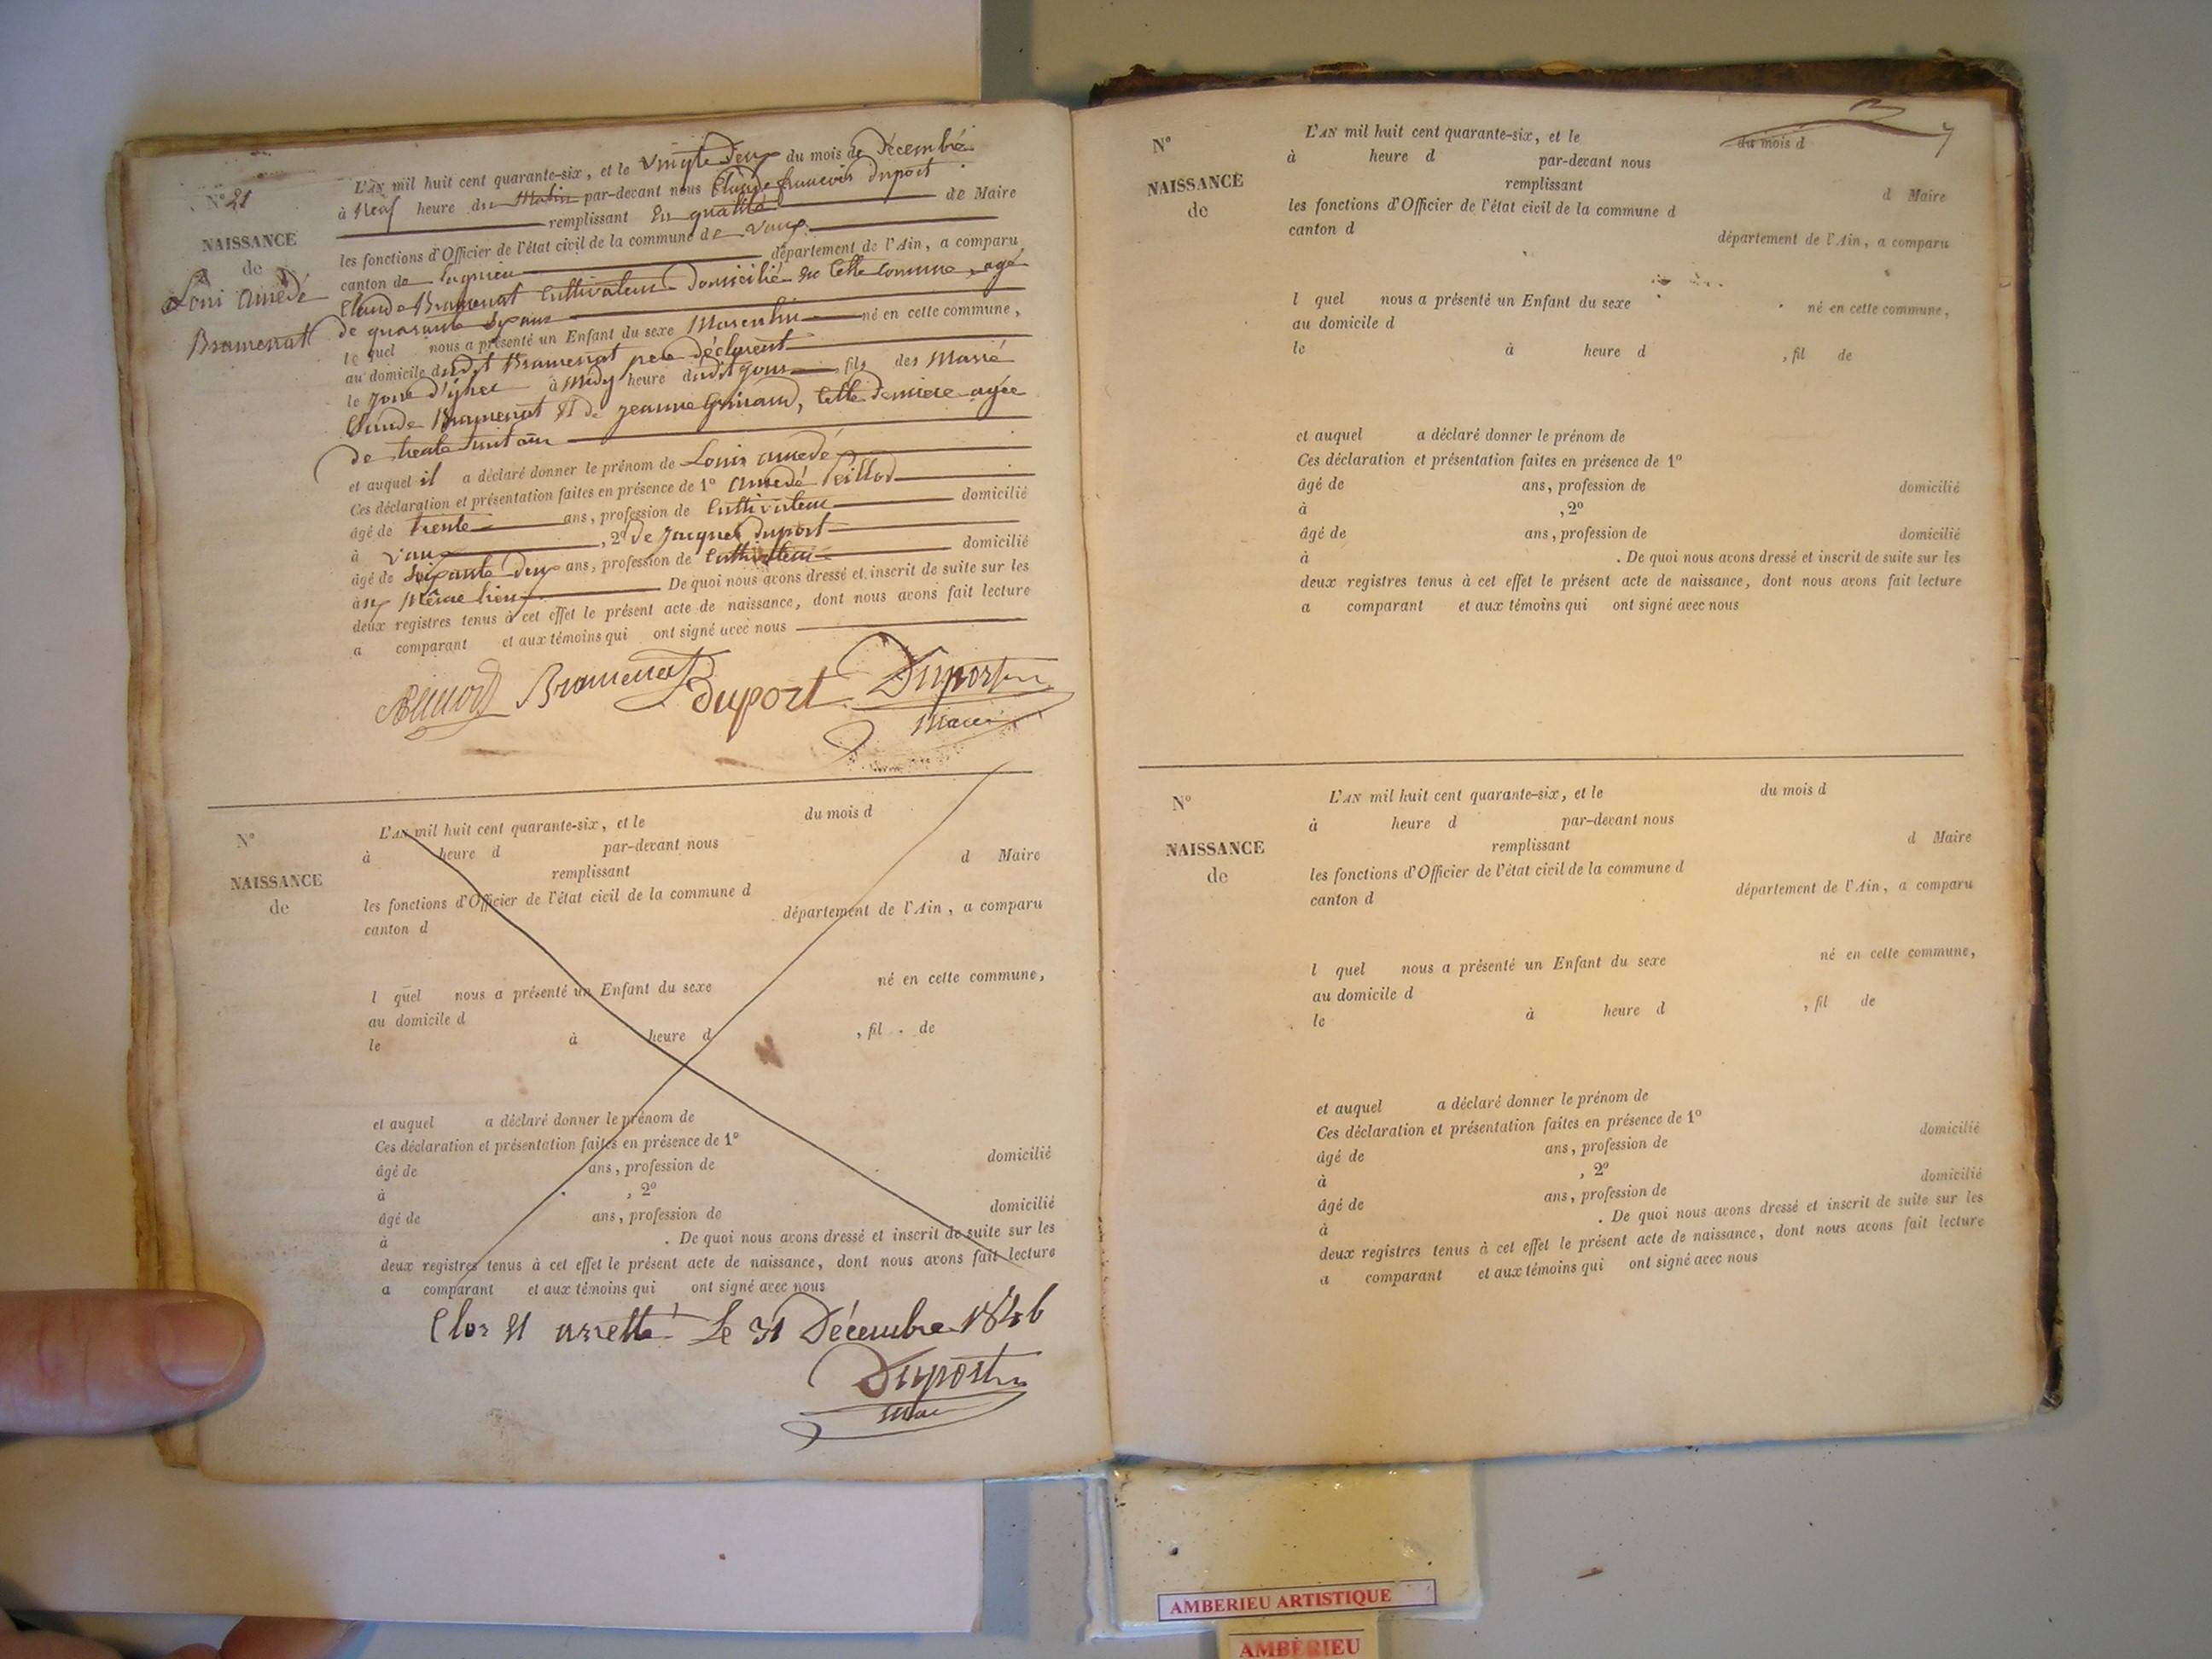 N° 21
NAISSANCE
de
Loui Amédé
Bramenat
L'AN mil huit cent quarante-six, et le vingt deux du mois de Décembre
à Neuf heure du Matin par-devant nous Claude francois Duport
remplissant En qualité de Maire
les fonctions d'Officier de l'état civil de la commune de Vaux
canton de Lagnieu département de l'Ain, a comparu
Claude Bramenat Cultivateur Domicilié En Cette Commune, agé
de quarante Six ans
le quel nous a présenté un Enfant du sexe Masculin né en cette commune,
au domicile dudit Bramenat pere déclarent
le jour d'yhec à Midy heure dudit jour, fils des Marié
Claude Bramenat Et de jeanne, Cette Derniere agée
de trente huit ans
et auquel il a déclaré donner le prénom de Louis amedé
Ces déclaration et présentation faites en présence de 1° Amedé
âgé de trente ans, profession de Cultivateur domicilié
à Vaux, 2° de Jacques Duport
âgé de Soixante Deux ans, profession de Cultivateur domicilié
à Même lieu De quoi nous avons dressé et inscrit de suite sur les
deux registres tenus à cet effet le présent acte de naissance, dont nous avons fait lecture
a comparant et aux témoins qui ont signé avec nous
Bramenat Duport Duport
Maire
N°
NAISSANCE
de
L'AN mil huit cent quarante-six, et le du mois d
à heure d par-devant nous
remplissant d Maire
les fonctions d'Officier de l'état civil de la commune d
canton d département de l'Ain, a comparu
l quel nous a présenté un Enfant du sexe né en cette commune,
au domicile d
le à heure d , fil de
et auquel a déclaré donner le prénom de
Ces déclaration et présentation faites en présence de 1°
âgé de ans, profession de domicilié
à , 2°
âgé de ans, profession de domicilié
à . De quoi nous avons dressé et inscrit de suite sur les
deux registres tenus à cet effet le présent acte de naissance, dont nous avons fait lecture
a comparant et aux témoins qui ont signé avec nous
Clos Et arretté Le 31 Décembre 1846
Duport
Maire
N°
NAISSANCE
de
L'AN mil huit cent quarante-six, et le du mois d
à heure d par-devant nous
remplissant d Maire
les fonctions d'Officier de l'état civil de la commune d
canton d département de l'Ain, a comparu
l quel nous a présenté un Enfant du sexe né en cette commune,
au domicile d
le à heure d , fil de
et auquel a déclaré donner le prénom de
Ces déclaration et présentation faites en présence de 1°
âgé de ans, profession de domicilié
à , 2°
âgé de ans, profession de domicilié
à . De quoi nous avons dressé et inscrit de suite sur les
deux registres tenus à cet effet le présent acte de naissance, dont nous avons fait lecture
a comparant et aux témoins qui ont signé avec nous
N°
NAISSANCE
de
L'AN mil huit cent quarante-six, et le du mois d
à heure d par-devant nous
remplissant d Maire
les fonctions d'Officier de l'état civil de la commune d
canton d département de l'Ain, a comparu
l quel nous a présenté un Enfant du sexe né en cette commune,
au domicile d
le à heure d , fil de
et auquel a déclaré donner le prénom de
Ces déclaration et présentation faites en présence de 1°
âgé de ans, profession de domicilié
à , 2°
âgé de ans, profession de domicilié
à . De quoi nous avons dressé et inscrit de suite sur les
deux registres tenus à cet effet le présent acte de naissance, dont nous avons fait lecture
a comparant et aux témoins qui ont signé avec nous
AMBERIEU ARTISTIQUE
AMBÉRIEU